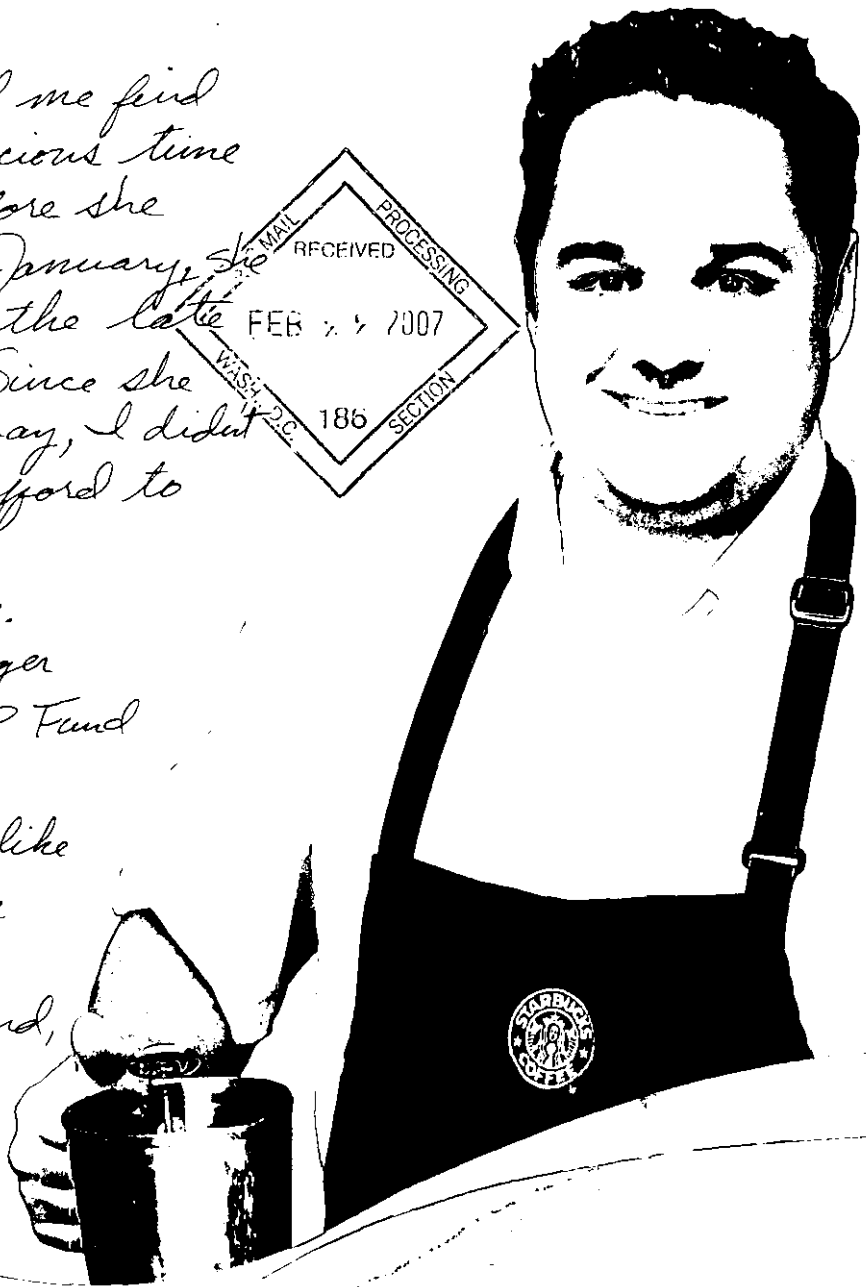 me find
cious time
ore she
January, she
the late
Since she
ay, I didn't
fford to
ger
P Fund
like
rd,
MAIL PROCESSING
RECEIVED
FEB 2007
WASH, D.C. 186 SECTION
STARBUCKS
COFFEE